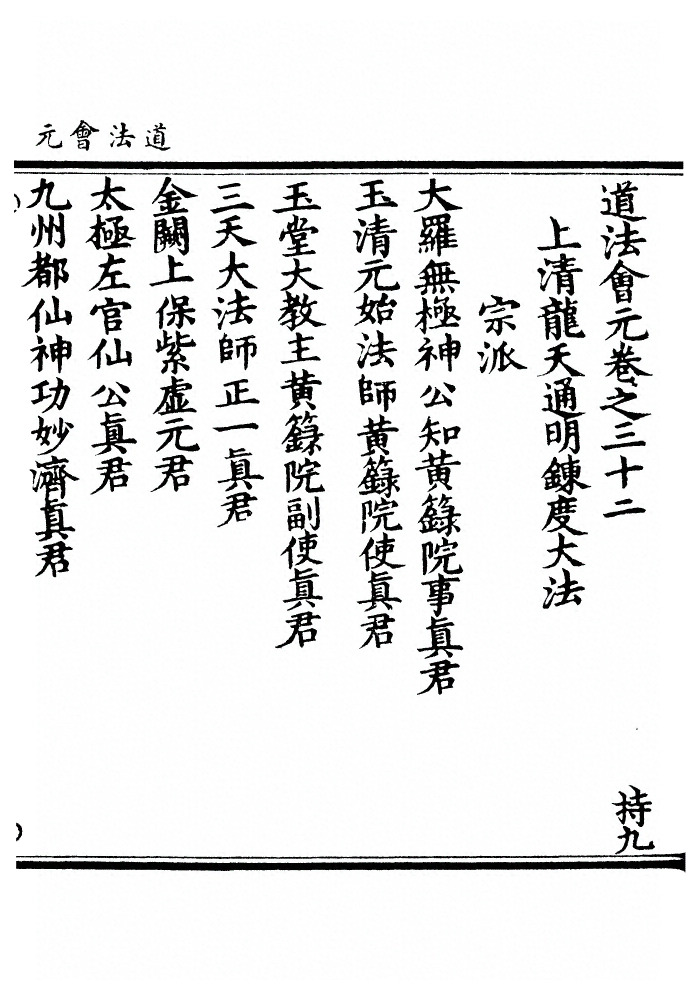 道法會元
道法會元卷之三十二
持九
上清龍天通明鍊度大法
宗派
大羅無極神公知黄籙院事眞君
玉清元始法師黄籙院使眞君
玉堂大教主黄籙院副使眞君
三天大法師正一眞君
金闕上保紫虛元君
太極左官仙公眞君
九州都仙神功妙濟眞君